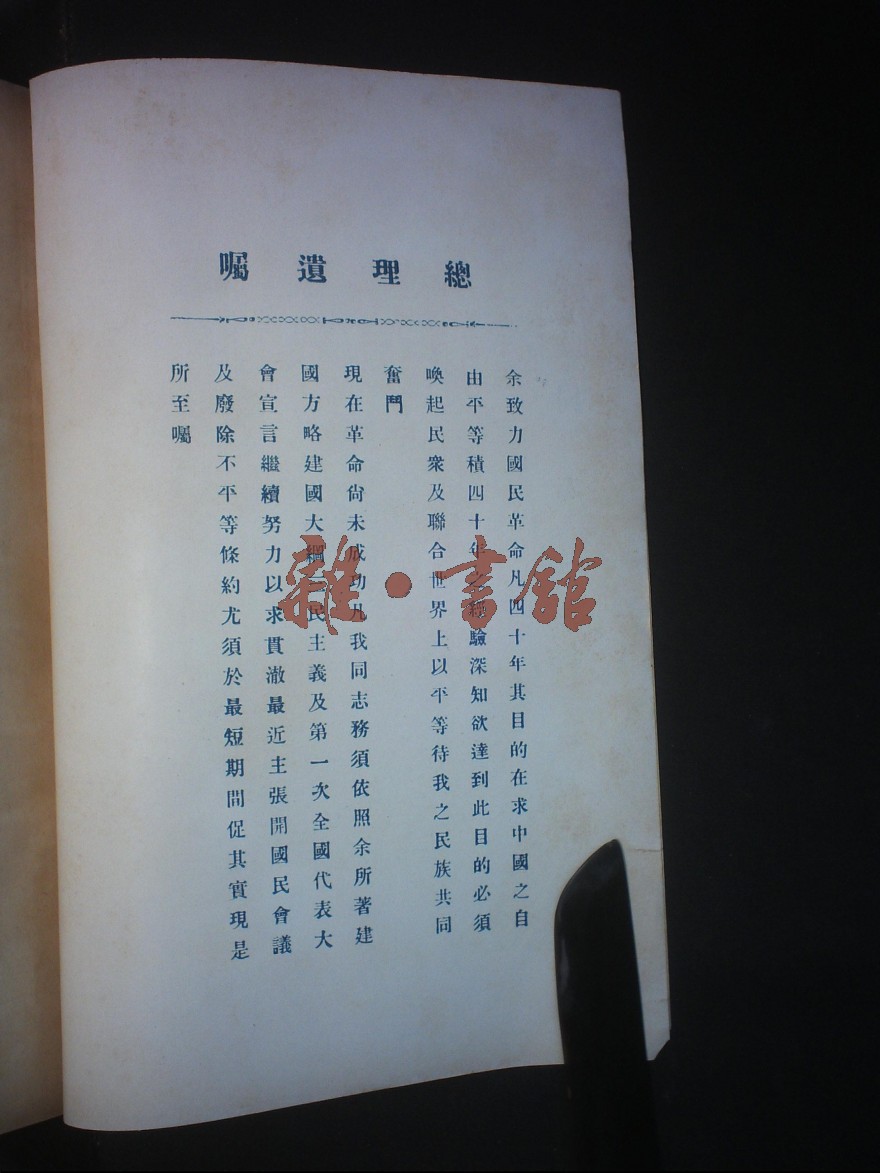 總理遺囑
余致力國民革命凡四十年其目的在求中國之自
由平等積四十年之經驗深知欲達到此目的必須
喚起民衆及聯合世界上以平等待我之民族共同
奮鬥
現在革命尙未成功凡我同志務須依照余所著建
國方略建國大綱三民主義及第一次全國代表大
會宣言繼續努力以求貫澈最近主張開國民會議
及廢除不平等條約尤須於最短期間促其實現是
所至囑
雜·書館